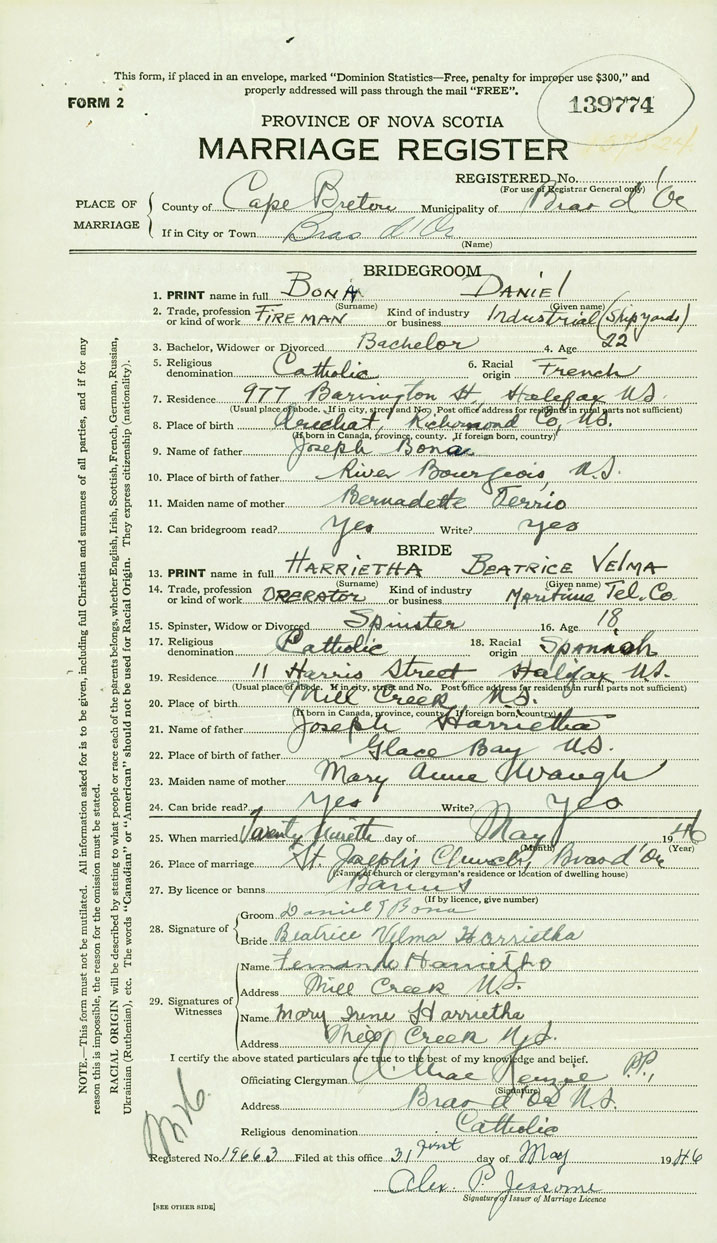 This form, if placed in an envelope, marked "Dominion Statistics—Free, penalty for improper use $300," and
properly addressed will pass through the mail "FREE".
FORM 2
139774
PROVINCE OF NOVA SCOTIA
MARRIAGE REGISTER
REGISTERED No.
(For use of Registrar General only)
PLACE OF MARRIAGE
County of Cape Breton Municipality of Bras d'Or
If in City or Town Bras d'Or
(Name)
BRIDEGROOM
1. PRINT name in full BONA DANIEL
(Surname) (Given name)
2. Trade, profession or kind of work FIREMAN Kind of industry or business Industrial (Shipyards)
3. Bachelor, Widower or Divorced Bachelor 4. Age 22
5. Religious denomination Catholic 6. Racial origin French
7. Residence 977 Barrington St., Halifax N.S.
(Usual place of abode. If in city, street and No. Post office address for residents in rural parts not sufficient)
8. Place of birth Arichat, Richmond Co, N.S.
(If born in Canada, province, county. If foreign born, country)
9. Name of father Joseph Bona
10. Place of birth of father River Bourgeois, N.S.
11. Maiden name of mother Bernadette Terrio
12. Can bridegroom read? Yes Write? yes
BRIDE
13. PRINT name in full HARRIETHA BEATRICE VELMA
(Surname) (Given name)
14. Trade, profession or kind of work OPERATOR Kind of industry or business Maritime Tel. Co.
15. Spinster, Widow or Divorced Spinster 16. Age 18
17. Religious denomination Catholic 18. Racial origin Spanish
19. Residence 11 Harris Street, Halifax N.S.
(Usual place of abode. If in city, street and No. Post office address for residents in rural parts not sufficient)
20. Place of birth Mill Creek, N.S.
(If born in Canada, province, county. If foreign born, country)
21. Name of father Joseph Harrietha
22. Place of birth of father Glace Bay N.S.
23. Maiden name of mother Mary Anne Waugh
24. Can bride read? Yes Write? Yes
25. When married Twenty day of May 1946
(Month) (Year)
26. Place of marriage St. Joseph's Church, Bras d'Or
(Name of church or clergyman's residence or location of dwelling house)
27. By licence or banns Banns
(If by licence, give number)
28. Signature of
Groom Daniel J Bona
Bride Beatrice Velma Harrietha
29. Signatures of Witnesses
Name Harrietha
Address Mill Creek N.S.
Name Mary Irene Harrietha
Address Mill Creek N.S.
I certify the above stated particulars are true to the best of my knowledge and belief.
Officiating Clergyman MacKenzie P.P.,
(Signature)
Address Bras d'Or N.S.
Religious denomination Catholic
Registered No. 19663 Filed at this office 31 first day of May 1946
Alex. P. Jessome
Signature of Issuer of Marriage Licence
[SEE OTHER SIDE]
NOTE.—This form must not be mutilated. All information asked for is to be given, including full Christian and surnames of all parties, and if for any
reason this is impossible, the reason for the omission must be stated.
RACIAL ORIGIN will be described by stating to what people or race each of the parents belongs, whether English, Irish, Scottish, French, German, Russian,
Ukrainian (Ruthenian), etc. The words "Canadian" or "American" should not be used for Racial Origin. They express citizenship (nationality).